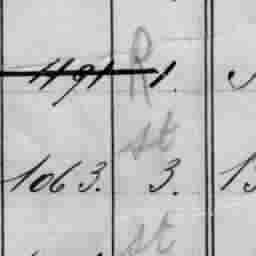 R
1191 1.
st
1063. 3. 13
st